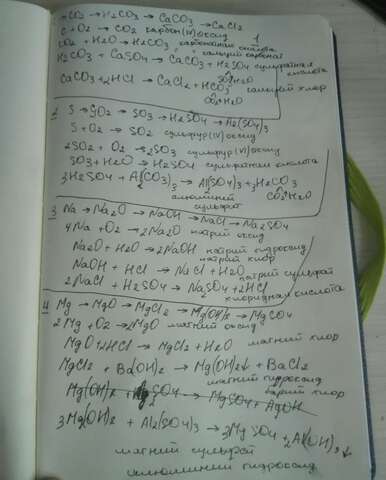 →CO2 → H2CO3 → CaCO3 → CaCl2
C + O2 → CO2 карбон(IV) оксид 1
CO2 + H2O → H2CO3 карбонатная кислота
H2CO3 + CaSO4 → CaCO3 + H2SO4 сульфатная кислота
CO2 H2O
CaCO3 + 2HCl → CaCl2 + H2CO3 кальций хлор
CO2 H2O
2 S → SO2 → SO3 → H2SO4 → Al2(SO4)3
S + O2 → SO2 сульфур(IV) оксид
2SO2 + O2 → 2SO3 сульфур(VI) оксид
SO3 + H2O → H2SO4 сульфатная кислота
3H2SO4 + Al2(CO3)3 → Al2(SO4)3 + 3H2CO3
алюминий сульфат CO2 H2O
3 Na → Na2O → NaOH → NaCl → Na2SO4
4Na + O2 → 2Na2O натрий оксид
Na2O + H2O → 2NaOH натрий гидроксид
натрий хлор
NaOH + HCl → NaCl + H2O
натрий сульфат
2NaCl + H2SO4 → Na2SO4 + 2HCl
хлоридная кислота
4 Mg → MgO → MgCl2 → Mg(OH)2 → MgSO4
2Mg + O2 → 2MgO магний оксид
MgO + 2HCl → MgCl2 + H2O магний хлор
MgCl2 + Ba(OH)2 → Mg(OH)2↓ + BaCl2
магний гидроксид барий хлор
Mg(OH)2 + SO4 → MgSO4 + AgOH
3Mg(OH)2 + Al2(SO4)3 → 3MgSO4 + 2Al(OH)3↓
магний сульфат
алюминий гидроксид